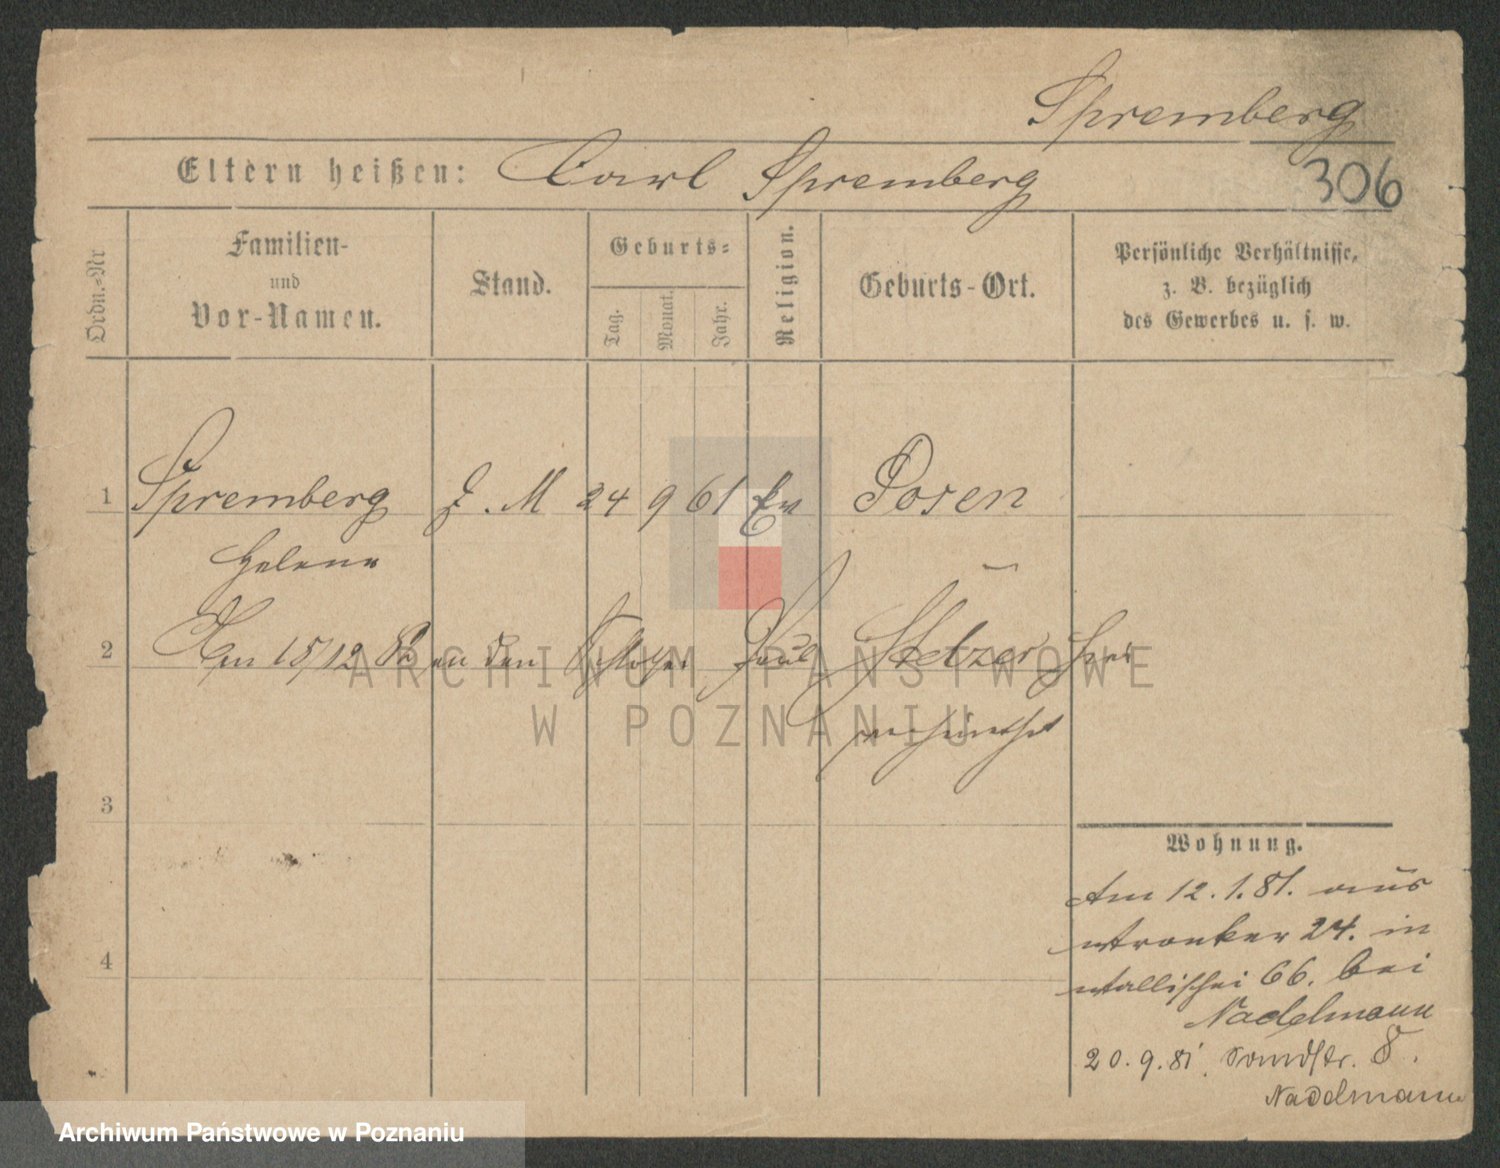 Spremberg
306
Eltern heißen: Carl Spremberg
Ordn.-Nr
Familien-
und
Vor-Namen.
Stand.
Geburts-
Tag.
Monat.
Jahr.
Religion.
Geburts-Ort.
Persönliche Verhältnisse,
z. B. bezüglich
des Gewerbes u. s. w.
1 Spremberg D. M 24 9 61 Ev Posen
Helene
2 Am 15/12 an den Schlosser Paul Stelzer hier
verheirathet
3
4
Wohnung.
Am 12.1.81. aus
Wronker 24. in
Wallischei 66. bei
Nadelmann
20.9.81. 8.
Nadelmann
ARCHIWUM PAŃSTWOWE
W POZNANIU
Archiwum Państwowe w Poznaniu